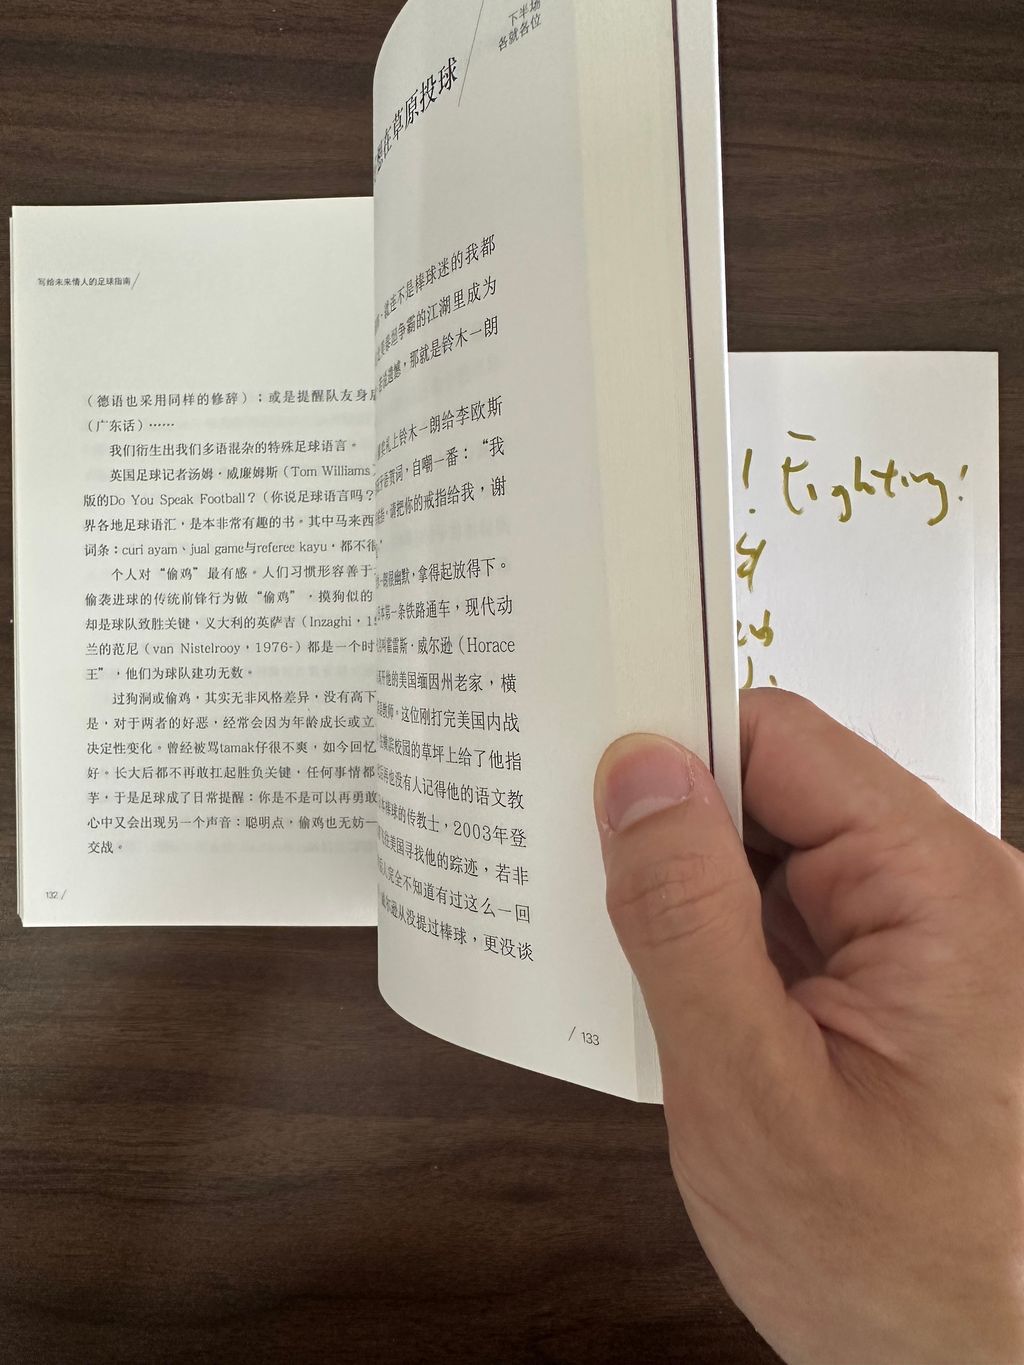 写给未来情人的足球指南
（德语也采用同样的修辞）；或是提醒队友身后
（广东话）……
我们衍生出我们多语混杂的特殊足球语言。
英国足球记者汤姆·威廉姆斯（Tom Williams
版的Do You Speak Football？（你说足球语言吗？
界各地足球语汇，是本非常有趣的书。其中马来西
词条：curi ayam、jual game与referee kayu，都不很
个人对“偷鸡”最有感。人们习惯形容善于
偷袭进球的传统前锋行为做“偷鸡”，摸狗似的
却是球队致胜关键，义大利的英萨吉（Inzaghi，1
兰的范尼（van Nistelrooy，1976-）都是一个时
王”，他们为球队建功无数。
过狗洞或偷鸡，其实无非风格差异，没有高下
是，对于两者的好恶，经常会因为年龄成长或立
决定性变化。曾经被骂tamak仔很不爽，如今回忆
好。长大后都不再敢扛起胜负关键，任何事情都
芋，于是足球成了日常提醒：你是不是可以再勇敢
心中又会出现另一个声音：聪明点，偷鸡也无妨一
交战。
132 /
下半场
各就各位
想在草原投球
就连不是棒球迷的我都
争霸的江湖里成为
遗憾，那就是铃木一朗
礼上铃木一朗给李欧斯
贺词，自嘲一番：“我
请把你的戒指给我，谢
一朗很幽默，拿得起放得下。
本第一条铁路通车，现代动
霍雷斯·威尔逊（Horace
离开他的美国缅因州老家，横
教师。这位刚打完美国内战
在横滨校园的草坪上给了他指
后再也没有人记得他的语文教
本棒球的传教士，2003年登
在美国寻找他的踪迹，若非
人完全不知道有过这么一回
威尔逊从没提过棒球，更没谈
/ 133
! Fighting!